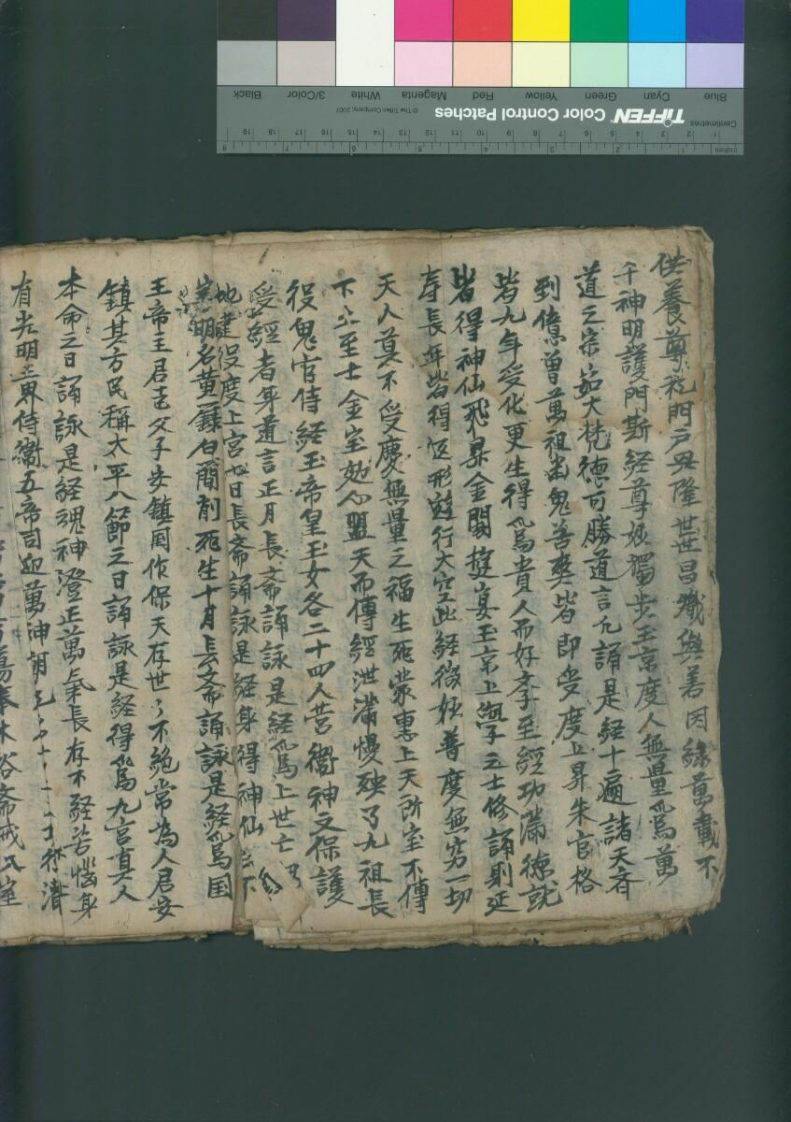 供養尊礼門戶興隆世世昌熾與善因緣萬載不
千神明護門斯經尊妙獨步玉京度人無量為萬
道之宗嵬大梵德可勝道言凡誦是經十遍諸天斉
到億曾萬祖幽鬼善爽皆即受度上昇朱宮格
皆九年受化更生得為貴人而好李至經功滿德就
皆得神仙飛昇金闕遊宴玉京上學之士修誦則延
寿長年皆得仮形遊行大空此經微妙普度無窮一切
天人莫不受慶無量之福生死蒙惠上天所宝不傳
下之至士金宝効心盟天而傳經泄漏慢殃及九祖長
役鬼官侍經玉帝皇玉女各二十四人営衛神文保護
受經者身道言正月長斎誦詠是經為上世亡
地建役度上宮七日長斎誦詠是經身得神仙
宗明名黃籙白簡削死生十月長斎誦詠是經為国
王帝王君臣父子安鎮国作保天存世々不絕常為人君安
鎮其方民稱太平八節之日誦詠是經得為九宮真人
本命之日誦詠是經魂神澄正萬氣長存不經苦惱身
有光明三界侍衛五帝司迎萬神朝
沐浴斎戒入室
Blue
Cyan
Green
Yellow
Red
Magenta
White
3/Color
Black
TIFFEN Color Control Patches
© The Tiffen Company, 2007
Centimetres
1 2 3 4 5 6 7 8 9 10 11 12 13 14 15 16 17 18 19
Inches
1 2 3 4 5 6 7 8